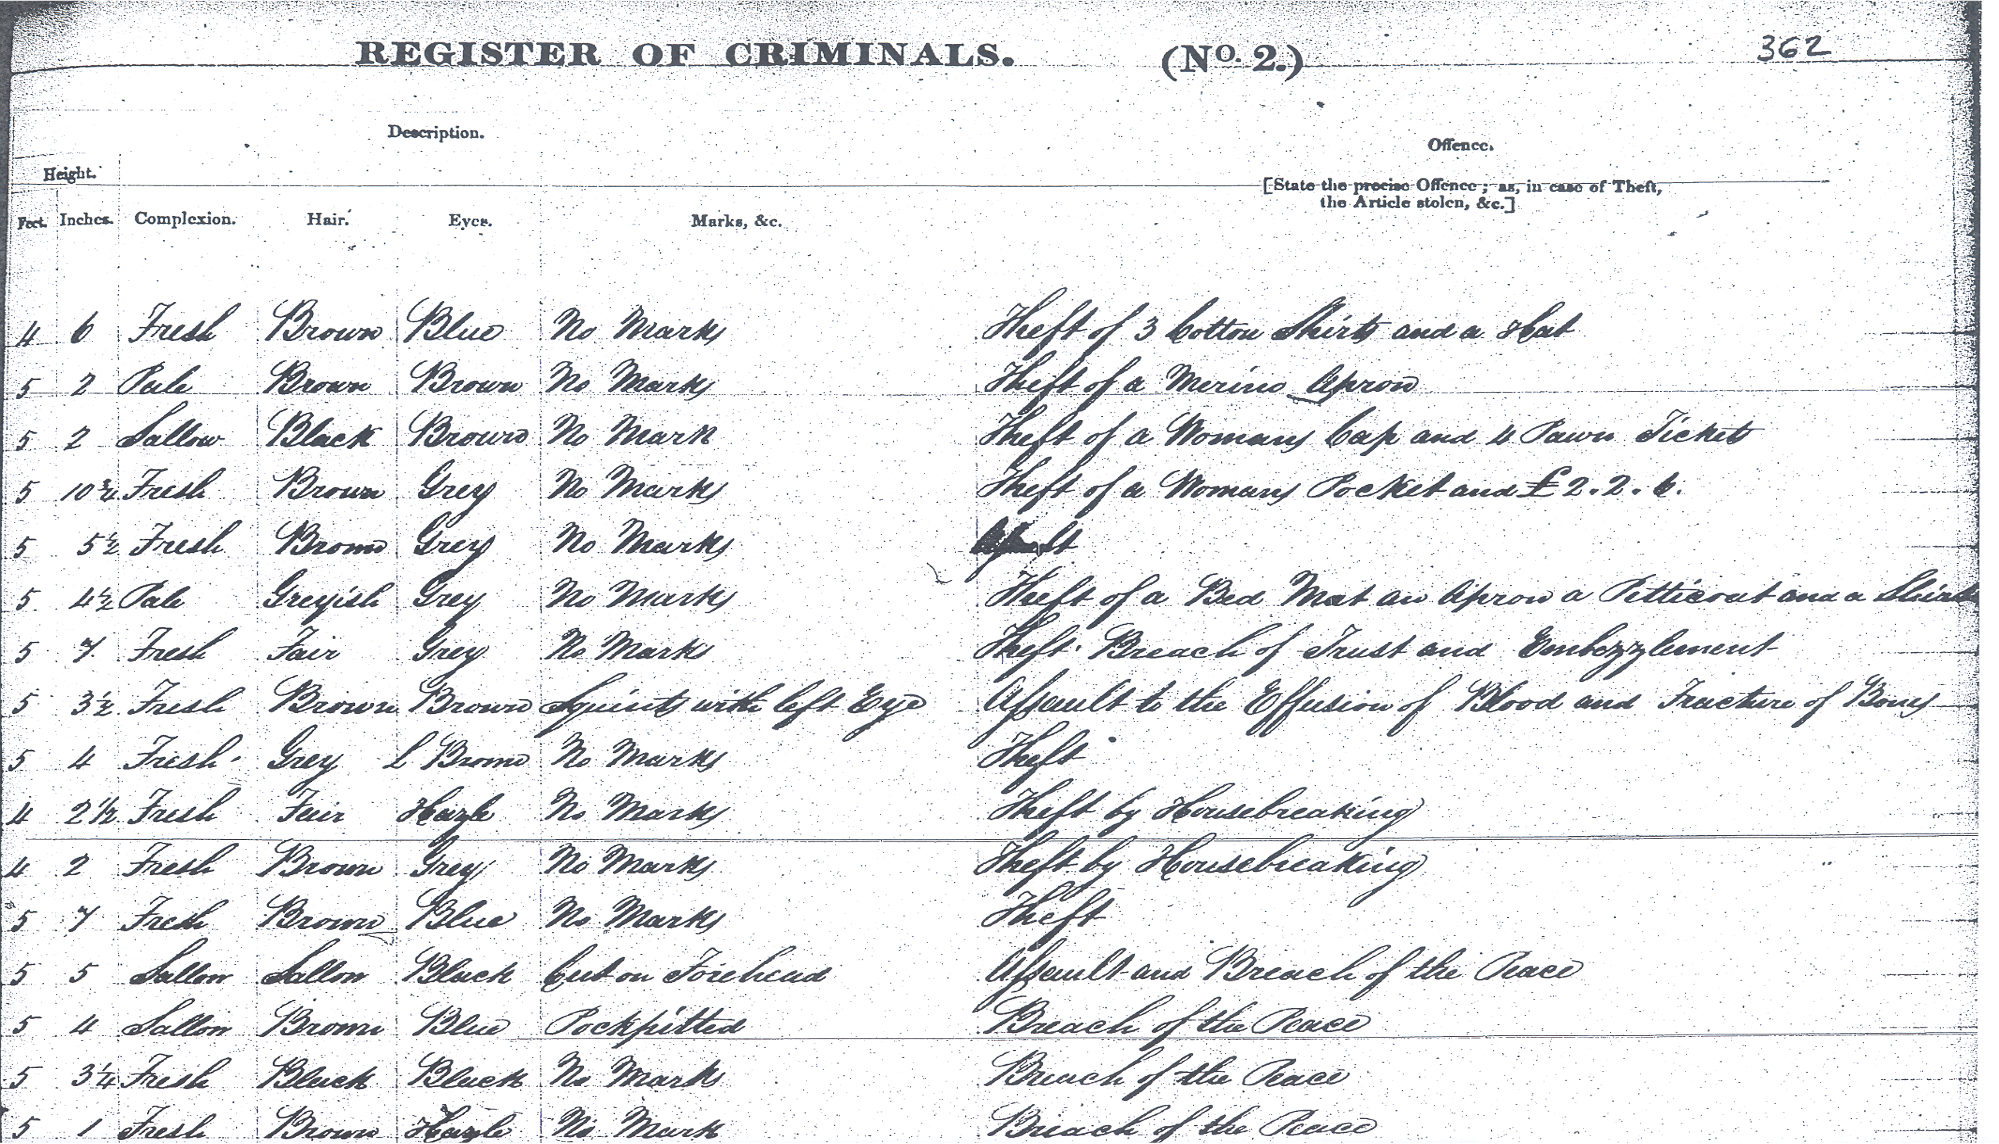 REGISTER OF CRIMINALS. (No. 2.) 362
Description.
Offence.
Height.
[State the precise Offence; as, in case of Theft,
the Article stolen, &c.]
Feet. Inches. Complexion. Hair. Eyes. Marks, &c.
4 6 Fresh Brown Blue No Marks Theft of 3 Cotton Shirts and a Hat
5 2 Pale Brown Brown No Marks Theft of a Merino Apron
5 2 Sallow Black Brown No Mark Theft of a Womans Cap and 4 Pawn Tickets
5 10¾ Fresh Brown Grey No Marks Theft of a Womans Pocket and £2.2.6.
5 5½ Fresh Brown Grey No Marks
5 4½ Pale Greyish Grey No Marks Theft of a Bed Mat an Apron a Petticoat and a Shirt
5 7 Fresh Fair Grey No Marks Theft. Breach of Trust and Embezzlement
5 3½ Fresh Brown Brown Squints with left Eye Assault to the Effusion of Blood and Fracture of Bones
5 4 Fresh Grey L Brown No Marks Theft
4 2½ Fresh Fair Hazle No Marks Theft by Housebreaking
4 2 Fresh Brown Grey No Marks Theft by Housebreaking
5 7 Fresh Brown Blue No Marks Theft
5 5 Sallow Sallow Black Cut on Forehead Assault and Breach of the Peace
5 4 Sallow Brown Blue Pockpitted Breach of the Peace
5 3¼ Fresh Black Black No Mark Breach of the Peace
5 1 Fresh Brown Hazle No Mark Breach of the Peace